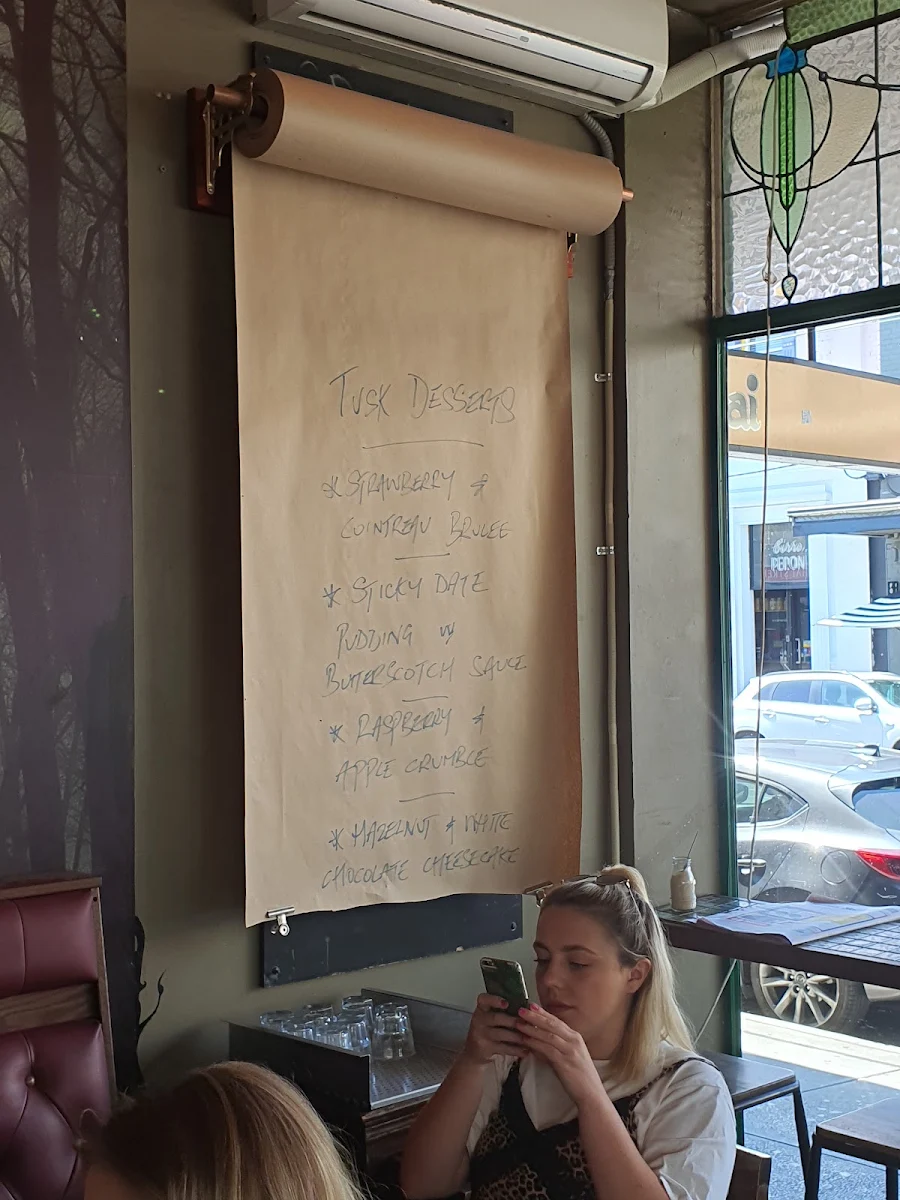 TUSK DESSERTS
* STRAWBERRY &
COINTREAU BRULEE
* STICKY DATE
PUDDING w/
BUTTERSCOTCH SAUCE
* RASPBERRY &
APPLE CRUMBLE
* HAZELNUT & WHITE
CHOCOLATE CHEESECAKE
ai
Birra
PERONI